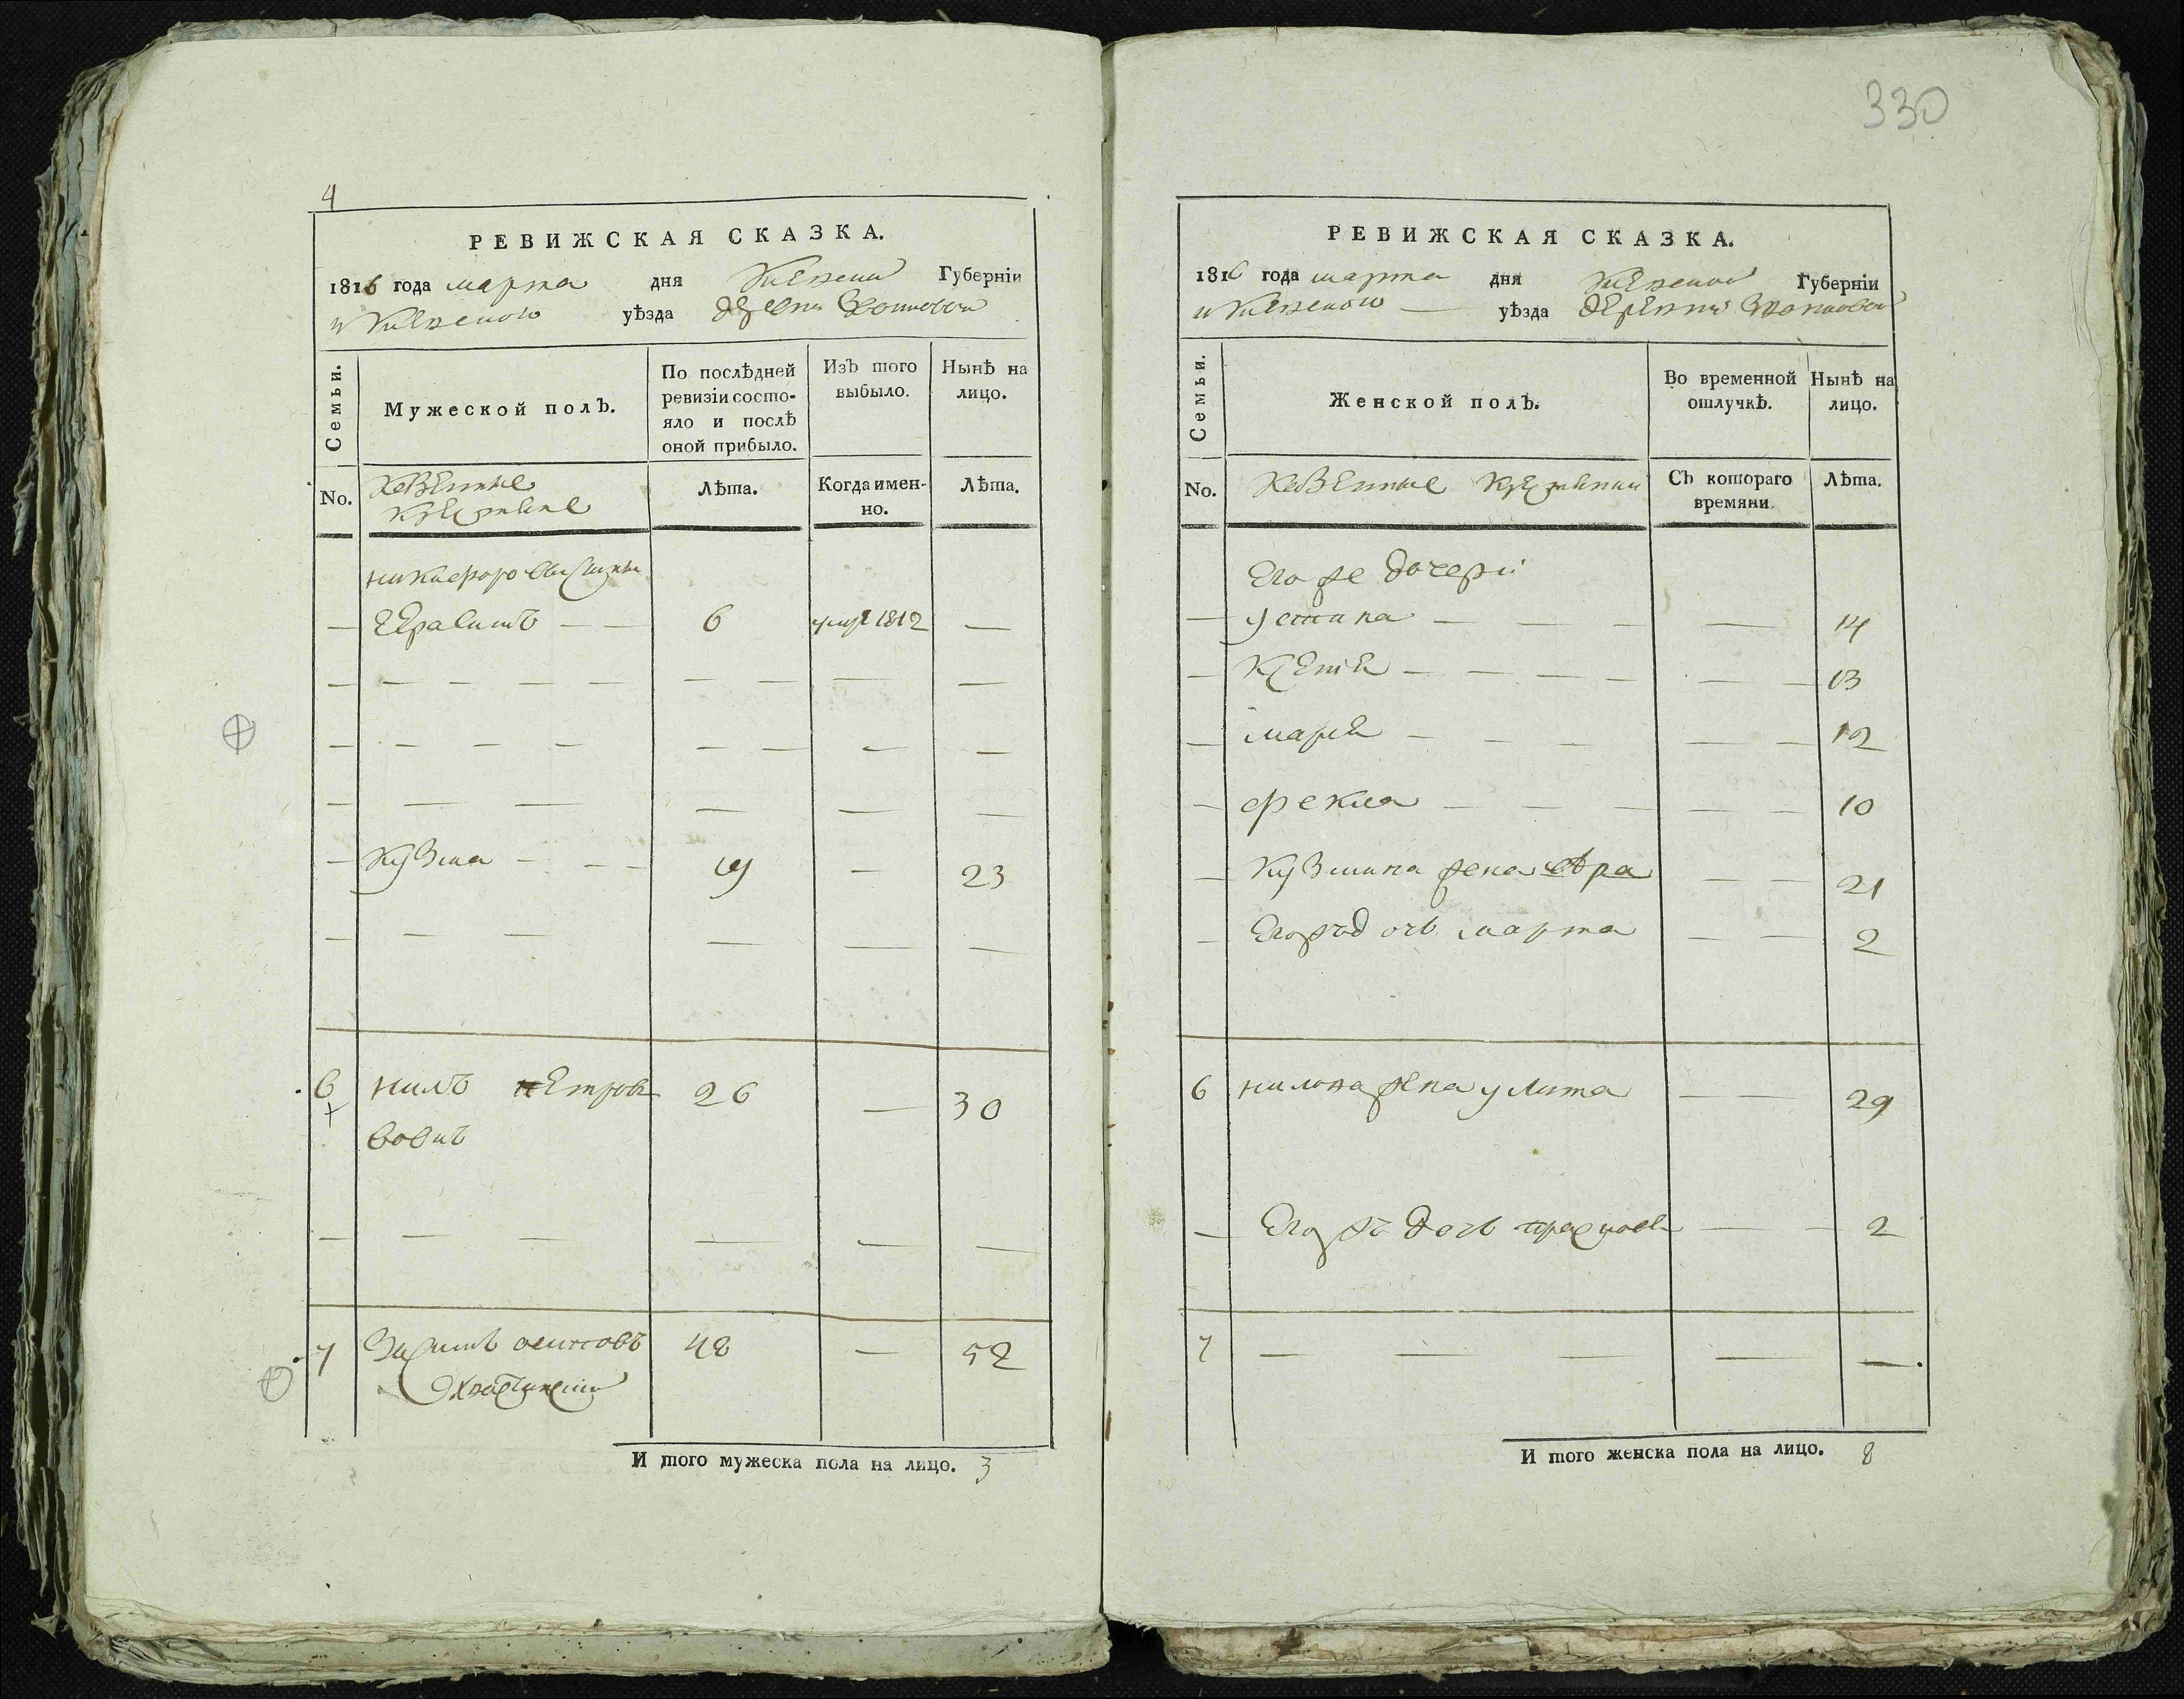 330
4
РЕВИЖСКАЯ СКАЗКА.
1816 года марта дня Киевской Губерніи
и Киевского уѣзда деревни
Семьи.
Мужеской полъ.
По послѣдней ревизіи состо-
яло и послѣ
оной прибыло.
Изъ того
выбыло.
Нынѣ на
лицо.
No.
Казенные
крестьяне
Лѣта.
Когда имен-
но.
Лѣта.
никифоровы сыны
— Герасимъ — — 6 умре 1812 —
— Кузма — — — 19 — 23
6 нилъ петровъ 26 — 30
7 осиповъ 48 — 52
И того мужеска пола на лицо. 3
РЕВИЖСКАЯ СКАЗКА.
1816 года марта дня Киевской Губерніи
и Киевского — уѣзда деревни
Семьи.
Женской полъ.
Во временной
отлучкѣ.
Нынѣ на
лицо.
No.
Казенные крестьянки
Съ котораго
времяни
Лѣта.
Его же дочери
— устина — — — — 14
— Ксения — — — — — — 13
— мария — — — — — 12
— фекла — — — — — 10
— Кузмина жена — — 21
— Егожъ дочь марта — — 2
6 нилова жена улита — — 29
— Егожъ дочь — — 2
7 — — — — —
И того женска пола на лицо. 8